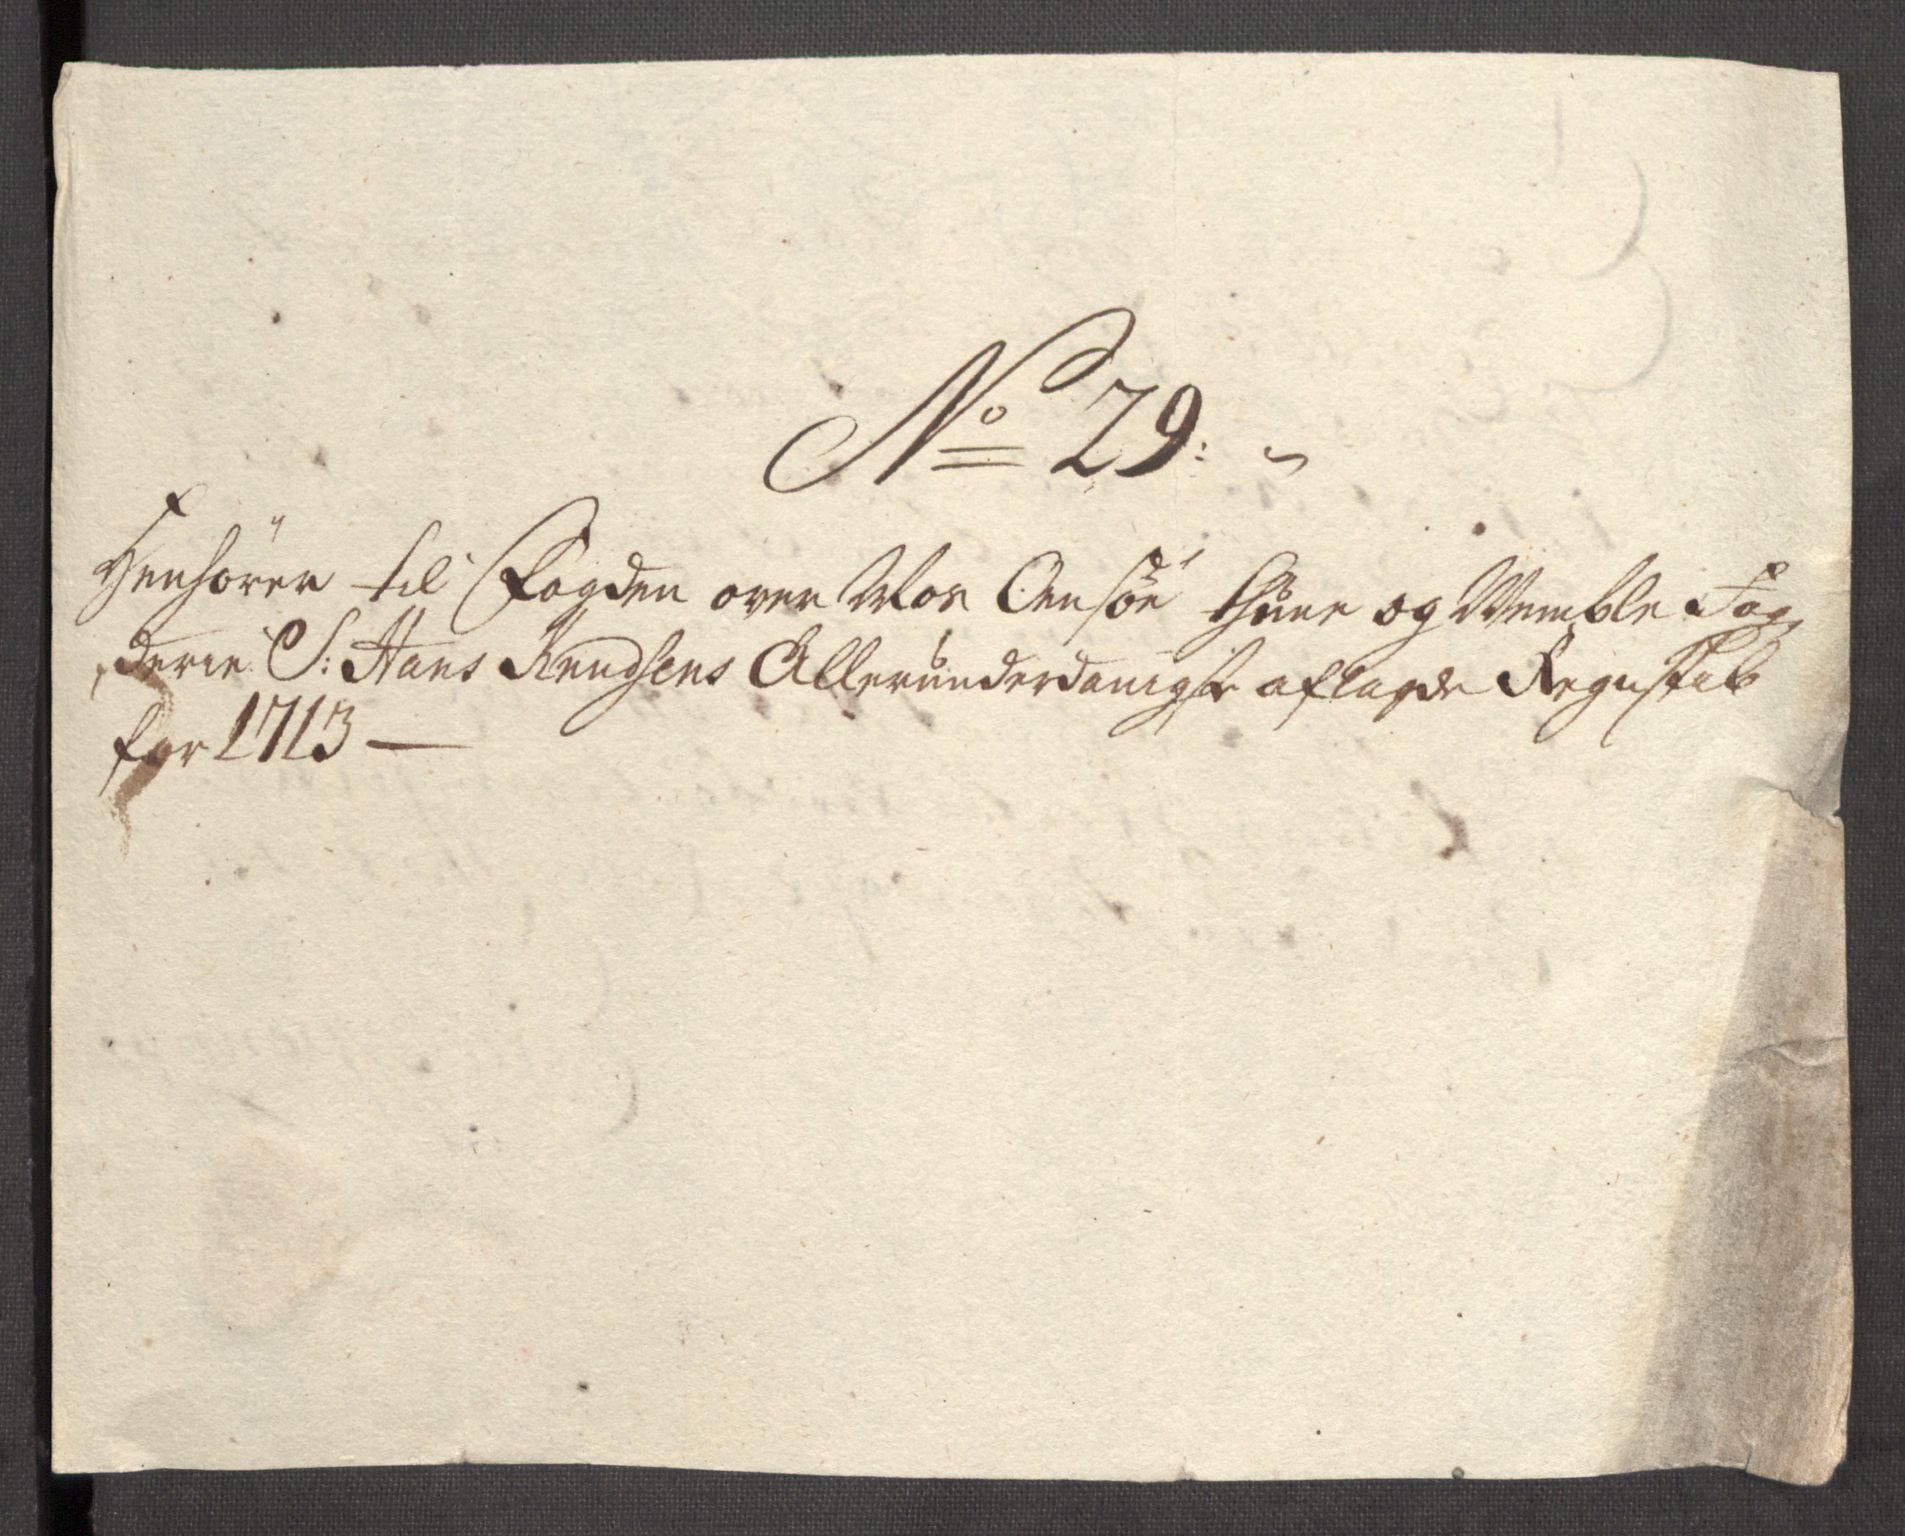 No 29:
Henhörer til Fogden over Mos Onsöe thune og Wemble Fog,
derie S: Hans Knudsens Allerunderdanigst aflagde Regnskab
for 1713 —